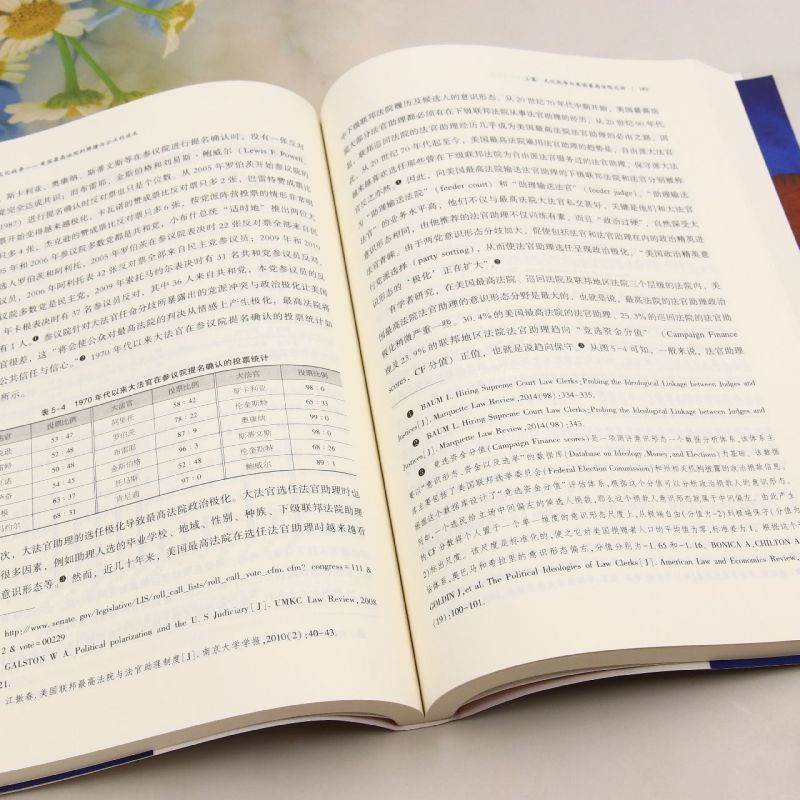 文化战争——美国最高法院的博德与公正的追求
斯卡利亚、奥康纳、斯蒂文斯等在参议院进行提名确认时，没有一张反对
党完全达成共识；而布雷耶、金斯伯格和刘易斯·鲍威尔（Lewis F. Powell,
1987）进行提名确认时反对票也只是个位数。从2005年罗伯茨开始参议院的
票开始变得越来越极化，卡瓦诺的赞成票比反对票只多2张，巴雷特赞成票比
只多4张，杰克逊的赞成票比反对票只多6张，按党派阵营投票的情形非常明
005年和2006年参议院多数党都是共和党，小布什总统“适时地”推出两位大
选人罗伯茨和阿利托，2005年罗伯茨在参议院表决时22张反对票全部来自民
议员，2006年阿利托表42张反对票全部来自民主党参议员；2009年和2010
议院多数党是民主党，2009年索托马约尔表决时有31名共和党参议员反对，
年卡根表决时有37名参议员反对，其中36人来自共和党，本党参议员的反
有1人。❶参议院针对大法官任命分歧所暴露出的党派冲突与政治极化让美国
官很差，这“将会使公众对最高法院的判决从情感上产生极化，最高法院将
公共信任与信心。”❷1970年代以来大法官在参议院提名确认的投票统计如
所示。
表5-4 1970年代以来大法官在参议院提名确认的投票统计
法官 投票比例 大法官 投票比例 大法官 投票比例
53:47 阿里托 58:42 斯卡利亚 98:0
克逊 52:48 罗伯茨 78:22 伦奎斯特 65:33
雷特 50:48 布雷耶 87:9 奥康纳 99:0
瓦诺 54:45 金斯伯格 96:3 斯蒂文斯 98:0
63:37 托马斯 52:48 伦奎斯特 68:26
根 68:31 肯尼迪 97:0 鲍威尔 89:1
马约尔
次，大法官助理的选任极化导致最高法院政治极化。大法官选任法官助理时也
很多因素，例如助理人选的毕业学校、地域、性别、种族、下级联邦法院助理
意识形态等。❸然而，近几十年来，美国最高法院在选任法官助理时越来越看
http://www.senate.gov/legislative/LIS/roll_call_lists/roll_call_vote_cfm.cfm? congress = 111 &
2 & vote = 00229
GALSTON W A. Political polarization and the U. S Judiciary [J]. UMKC Law Review, 2008
21.
江振春.美国联邦最高法院与法官助理制度[J].南京大学学报,2010(2):40-43.
上篇 文化战争与美国最高法院总论
中下级联邦法院履历及候选人的意识形态。从20世纪70年代中期开始，美国最高法
院大部分法官助理都必须有在下级联邦法院从事法官助理的经历，从20世纪90年代
起，联邦巡回法院的法官助理经历几乎成为美国最高法院法官助理的必由之路。因
此，从20世纪70年代起至今，美国最高法院雇用法官助理的趋势是，自由派大法官
越来越喜欢选任那些曾在下级联邦法院为自由派法官服务过的法官助理，保守派大法
官反之亦然。❶因此，向美国最高法院输送法官助理的下级联邦法院和法官分别被称
为“助理输送法院”（feeder court）和“助理输送法官”（feeder judge）。“助理输送
法官”的业务水平高，他们不仅与最高法院大法官私交甚好，关键是他们和大法官
意识形态相同，由他推荐的法官助理不仅训练有素，而且“政治过硬”，自然深受大
法官青睐。由于两党意识形态分歧加大，促使包括法官和法官助理在内的政治精英进
行党派选择（party sorting），从而使法官助理选任呈现政治极化，“美国政治精英意
识形态的‘极化’正在扩大”❷
有学者研究，在美国最高法院、巡回法院及联邦地区法院三个层级的法院内，美
国最高法院法官助理的意识形态分野是最大的，也就是说，最高法院的法官助理政治
极化稍微严重一些。30.4%的美国最高法院法官助理、25.3%的巡回法院的法官助
理及23.9%的联邦地区法院法官助理趋向“竞选资金分值”（Campaign Finance
scores，CF分值）正值，也就是说趋向保守。❸从图5-4可知，一般来说，法官助理
❶ BAUM L. Hiring Supreme Court Law Clerks: Probing the Ideological Linkage between Judges and
Justices[J]. Marquette Law Review,2014(98):334-335.
❷ BAUM L. Hiring Supreme Court Law Clerks: Probing the Ideological Linkage between Judges and
Justices[J]. Marquette Law Review,2014(98):343.
❸ 竞选资金分值(Campaign Finance scores)是一项测评意识形态一个数据分析体系。该体系主
要以“意识形态、资金以及选举”的数据库(Database on Ideology, Money, and Elections)为基础。该数据
库主要包括了美国联邦选举委员会(Federal Election Commission)和州相关机构披露的政治捐款信息。
根据这个数据库设计了“竞选资金分值”评估体系，根据这个分值可以分析政治捐款人的意识形态。
例如，一个选民给主场中间偏左的候选人捐款，那么这个捐款人意识形态就属于中间偏左。由此产生
的CF分数将个人置于一个单一维度的意识形态尺度上，从极端自由(分值为-2)到极端保守(分值为
2)标出尺度。该尺度是标准化的，使之它对美国捐赠者人口的平均值为零，标准差为1。根据这个评
估体系，奥巴马和希拉里的意识形态偏左，分值分别为-1.65和-1.16。BONICA A,CHILTON A,
GOLDIN J,et al. The Political Ideologies of Law Clerks[J]. American Law and Economics Review,
(19):100-101.